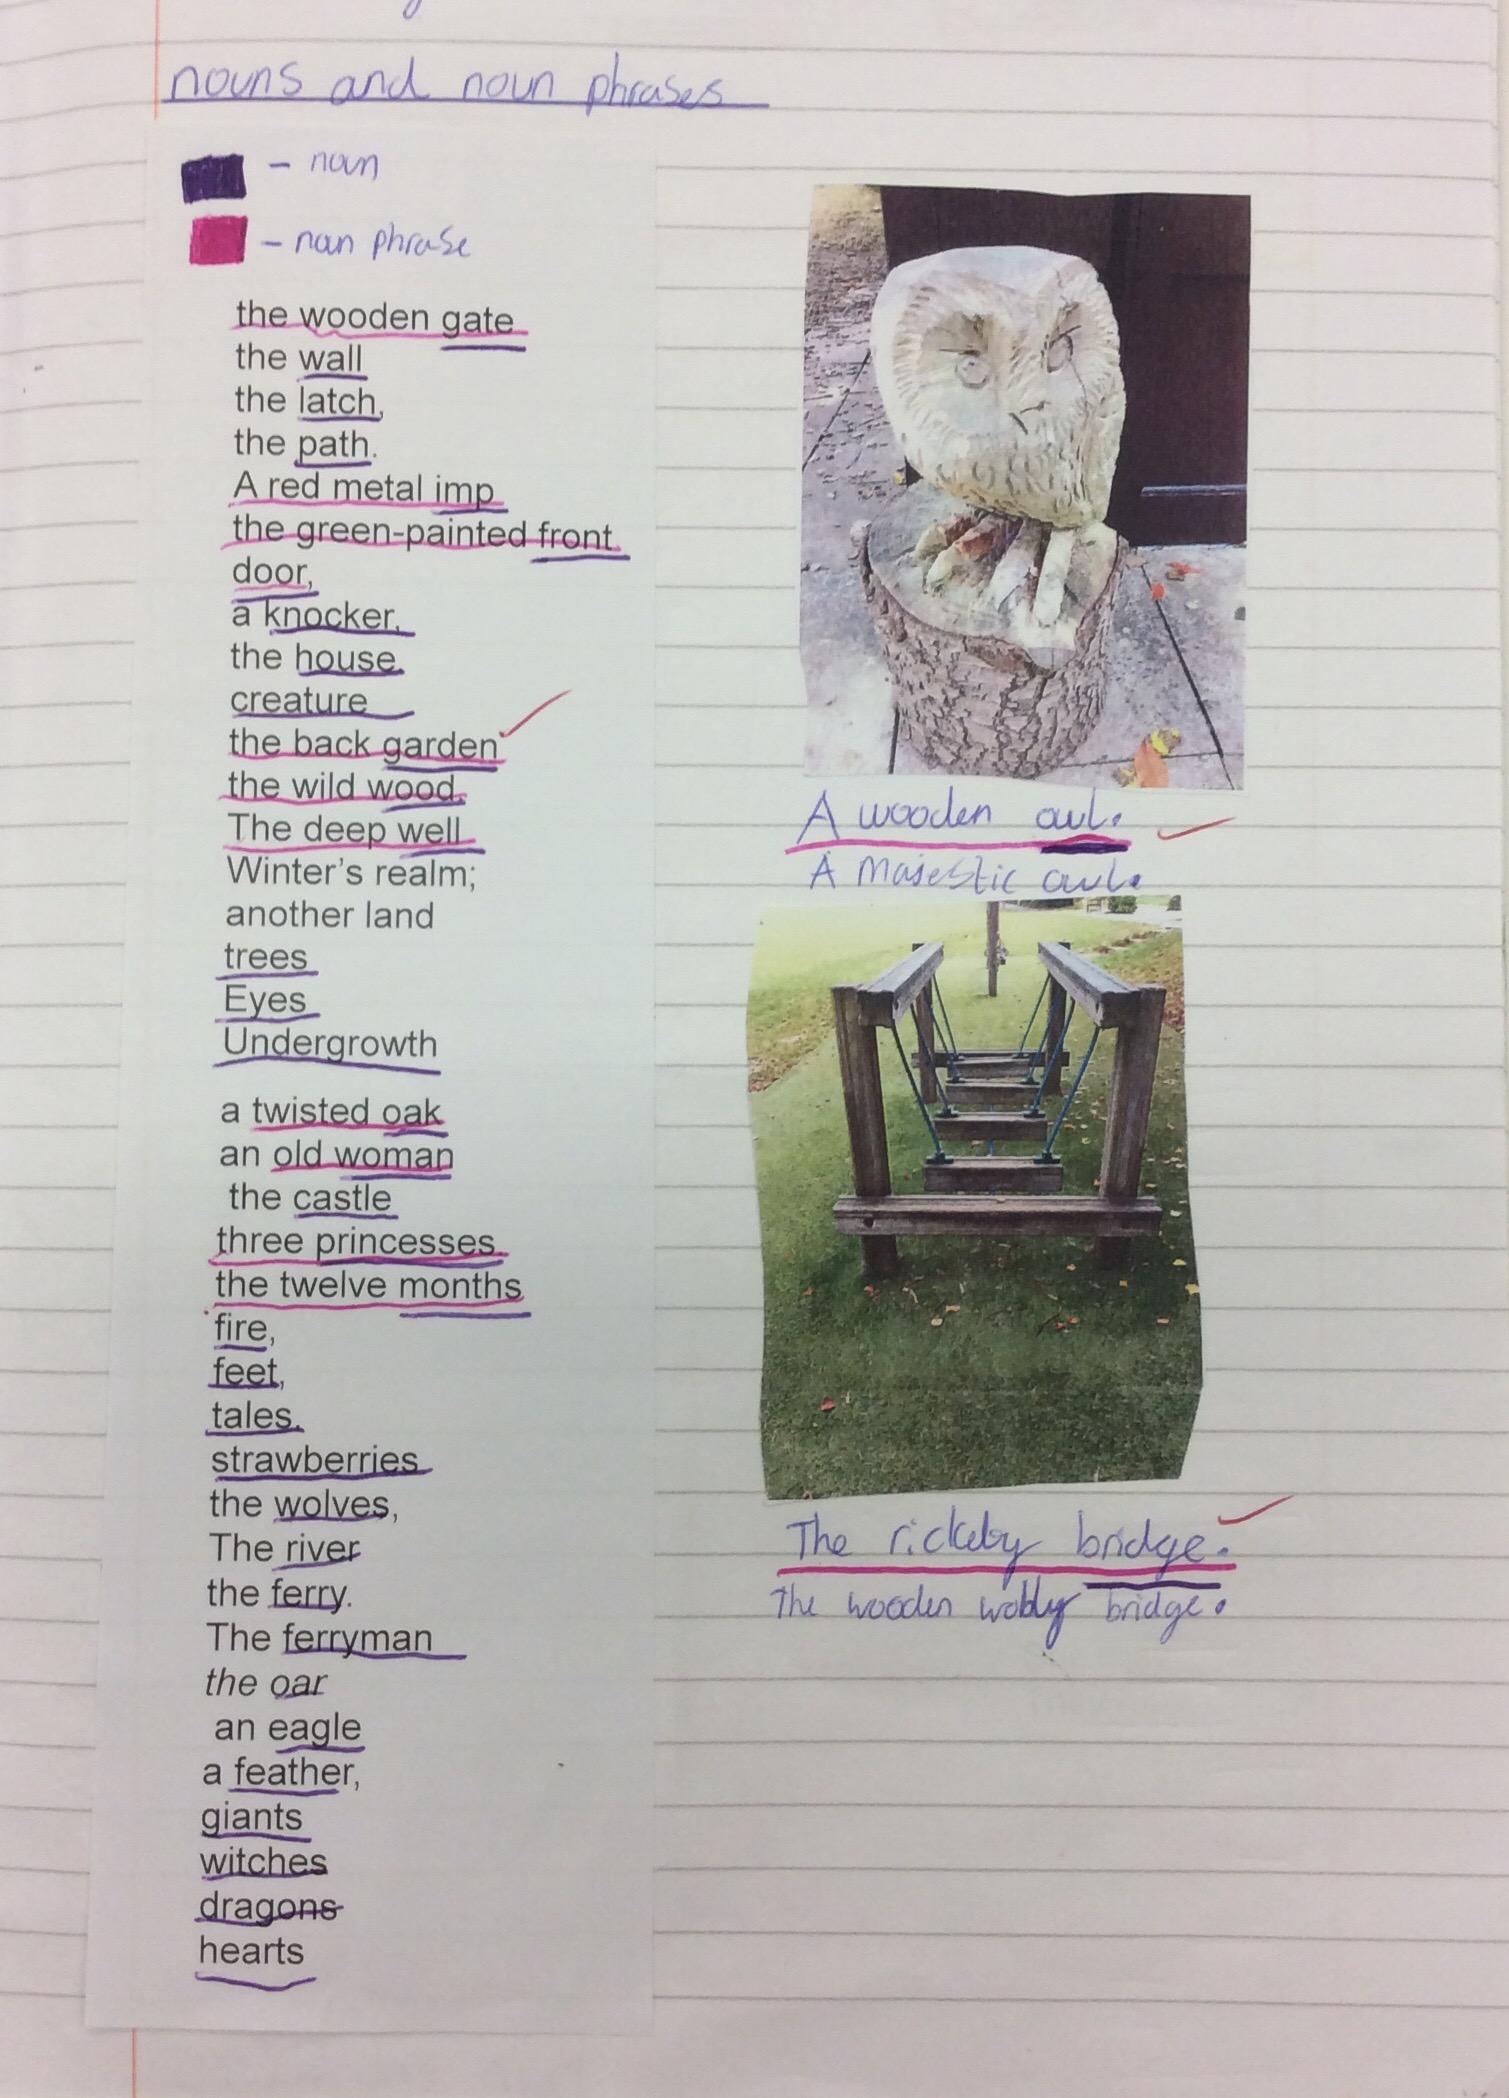 nouns and noun phrases
- noun
- noun phrase
the wooden gate
the wall
the latch,
the path.
A red metal imp
the green-painted front
door,
a knocker,
the house
creature
the back garden
the wild wood,
The deep well
Winter's realm;
another land
trees
Eyes
Undergrowth
a twisted oak
an old woman
the castle
three princesses
the twelve months
fire,
feet,
tales,
strawberries
the wolves,
The river
the ferry.
The ferryman
the oar
an eagle
a feather,
giants
witches
dragons
hearts
A wooden owl.
A majestic owl.
The rickety bridge.
The wooden wobly bridge.